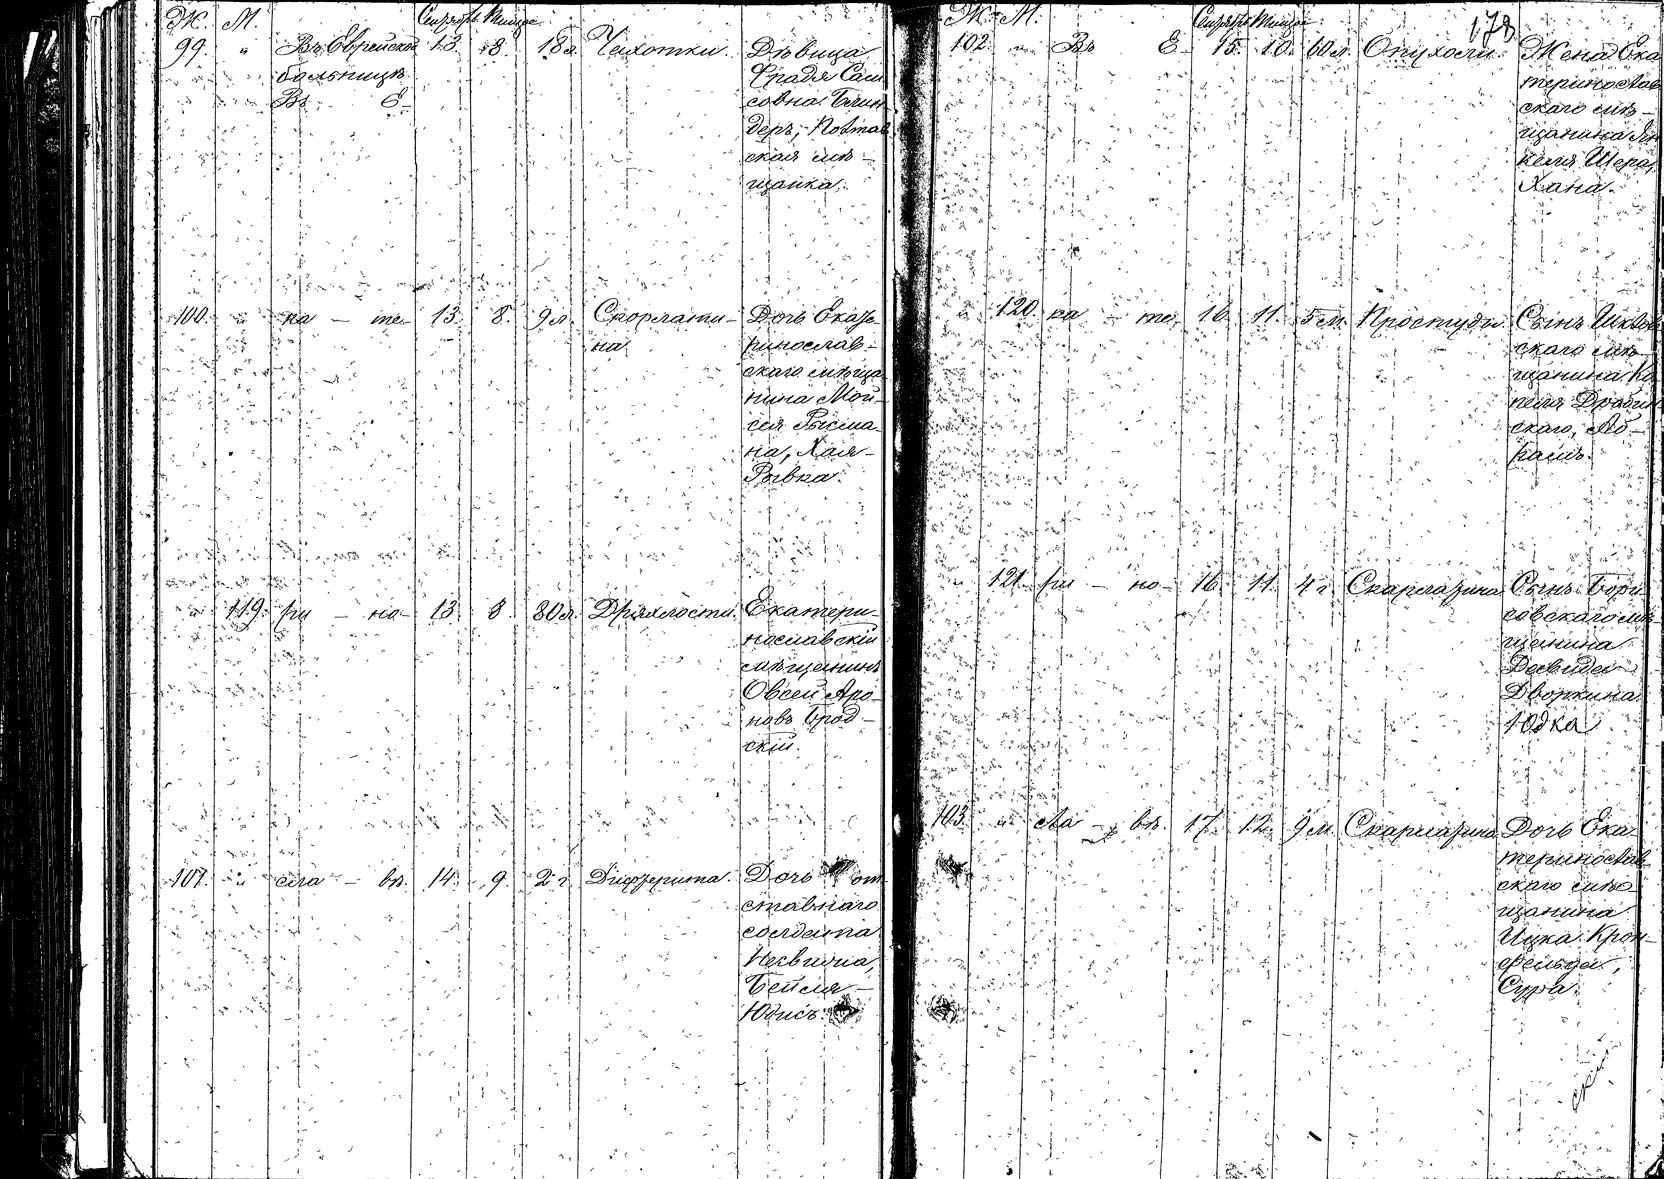 Ж. М. Сентябрь Тишре
99. " Въ Еврейской 13. 8 18 л. Чахотки Дѣвица
больницѣ Фрадя Сам
Въ Е- совна Блин
деръ, Полтав
ская мѣ-
щанка.
100. " ка - те- 13. 8. 9 л. Скорлати- Дочь Екате
на ринослав-
скаго мѣща
нина Мой-
сея Рысма
на, Хая-
Рывка.
" 119. ри - но- 13. 8. 80 л. Дряхлости. Екатери-
нославскій
мѣщанинъ
Овсей Аро
новъ Брод-
скій.
101. " сла - вѣ. 14. 9. 2 г. Дифтерита. Дочь от
ставнаго
солдата
Бейля-
Юдисъ.
178
Ж. М. Сентябрь Тишре
102 " Въ Е- 15. 10. 60 л. Опухоли. Жена Ека
теринослав
скаго мѣ-
щанина Ян
келя Шера,
Хана.
" 120. ка - те- 16. 11. 5 м. Простуды Сынъ Шклов
скаго мѣ-
щанина Ко
пеля Дробин
скаго, Аб-
рамъ.
" 121. ри - но- 16. 11. 4 г. Скарлатина Сынъ Бори
совскаго мѣ
щанина
Давида
Дворкина
Юдка
103. " сла - вѣ. 17. 12. 9 м. Скарлатина Дочь Ека
теринослав
скаго мѣ
щанина
Ицка Крон-
фельда,
Сура.